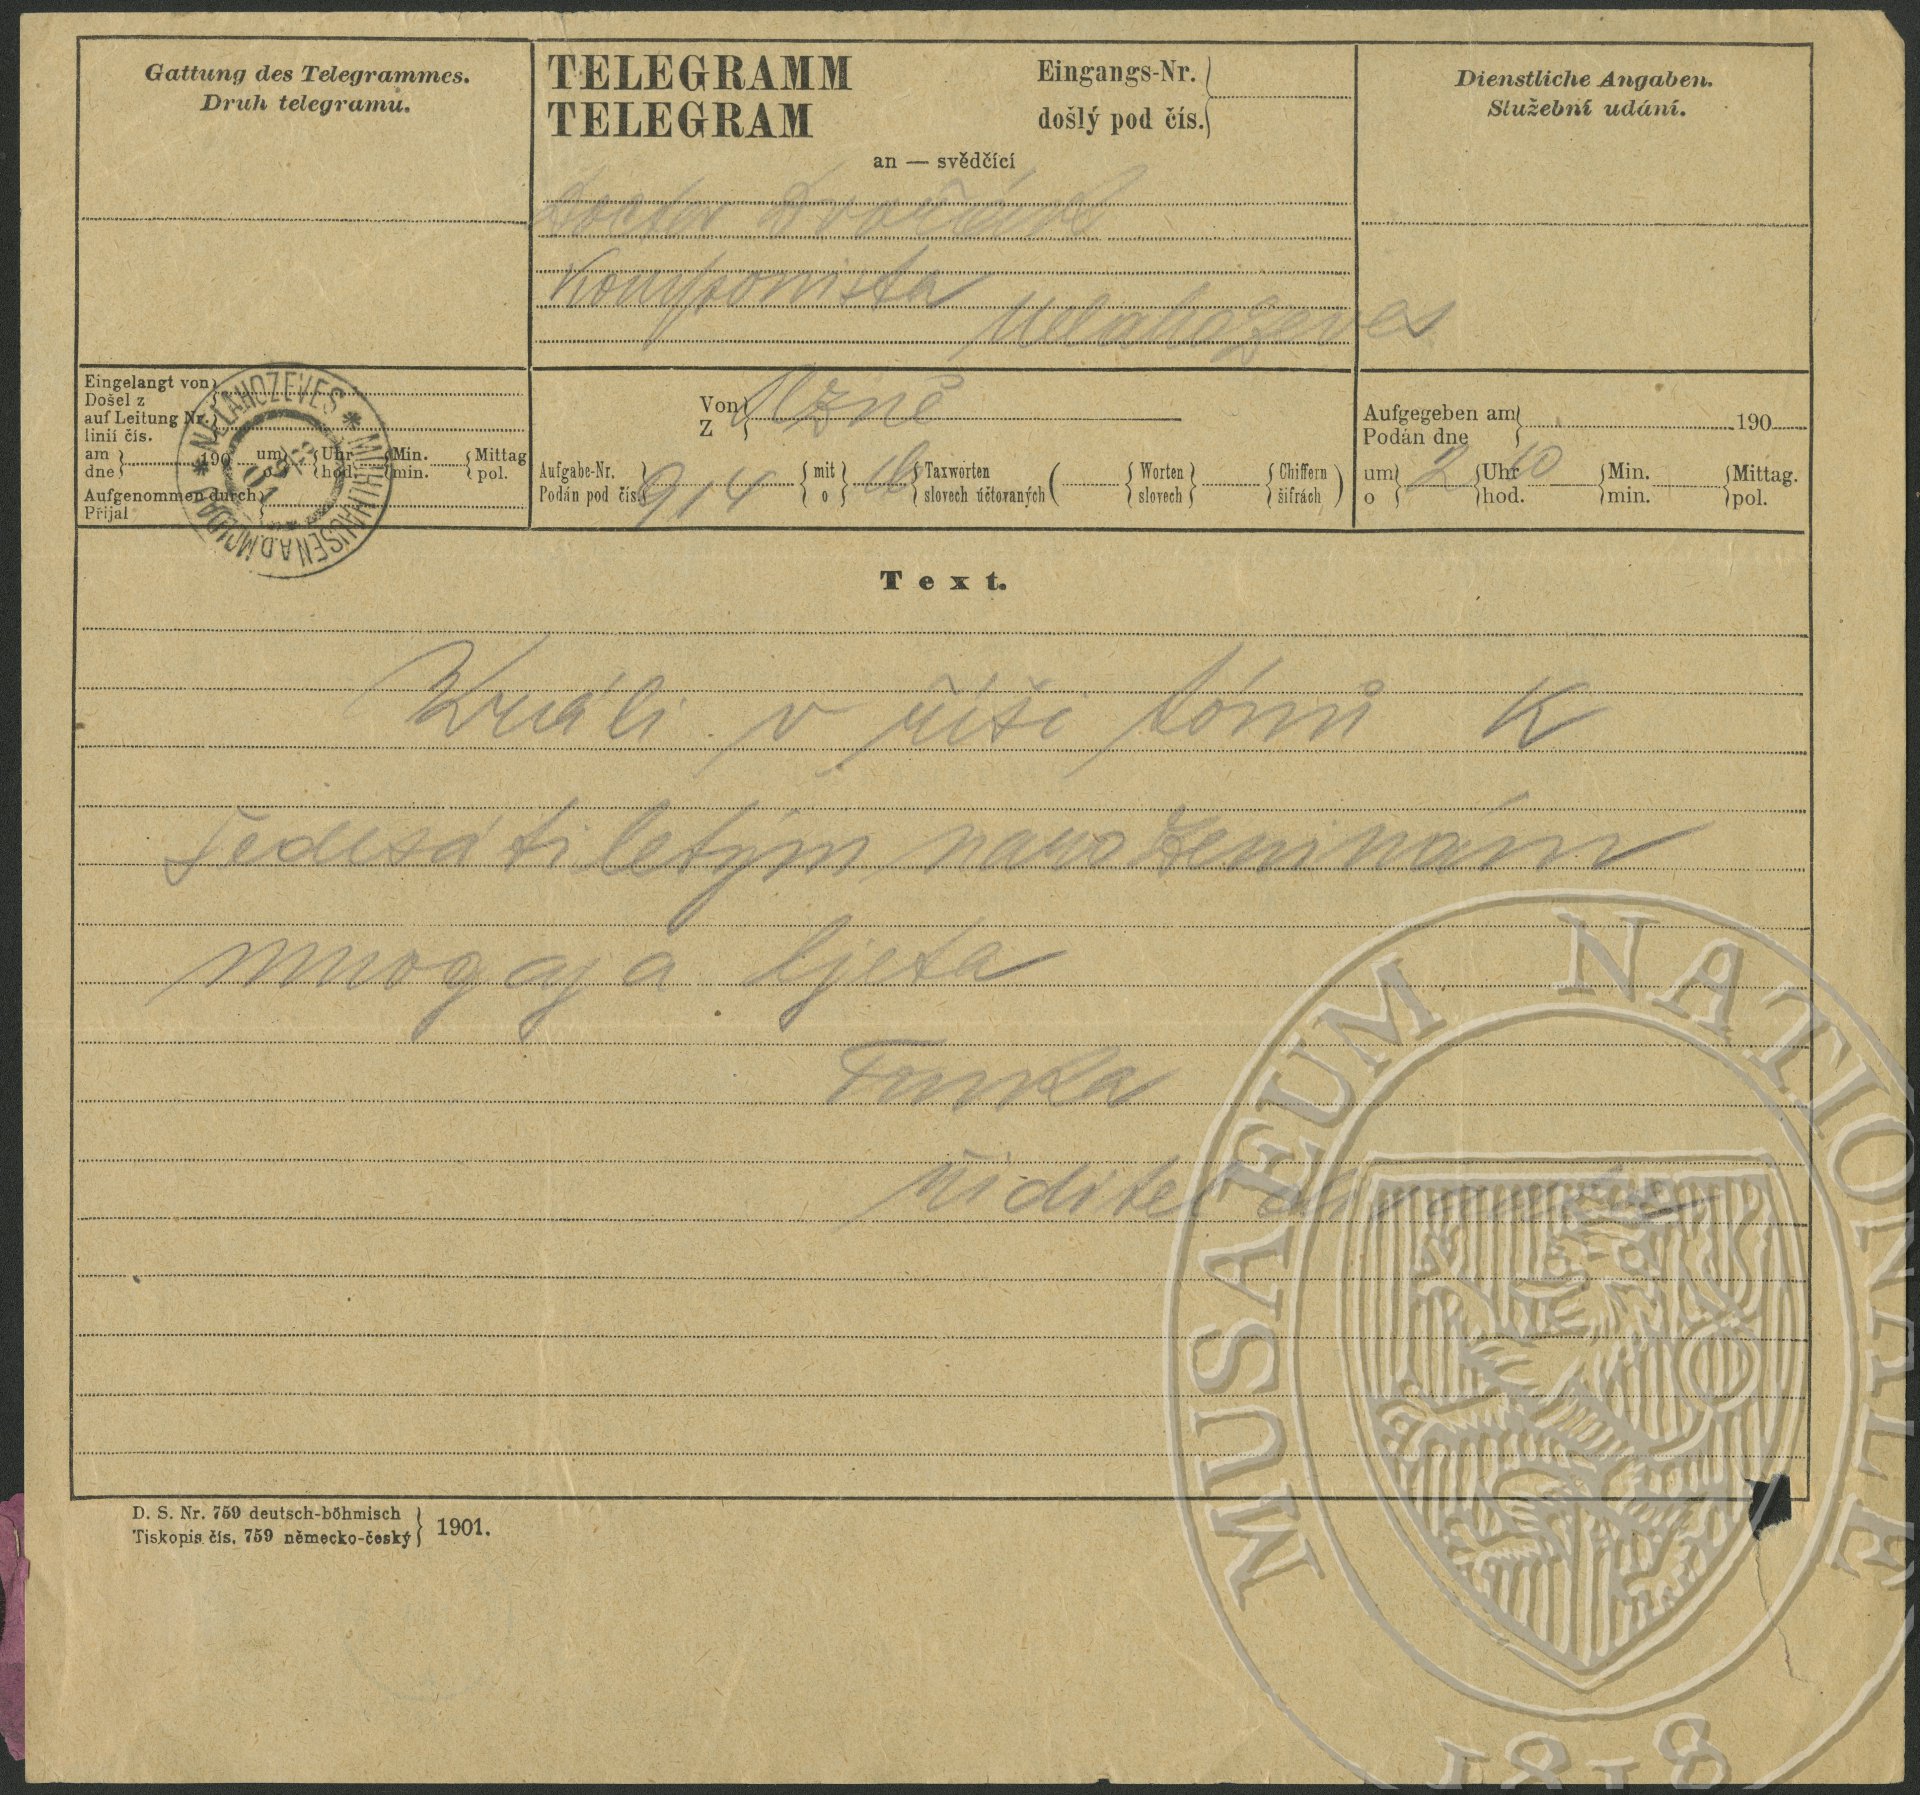 Gattung des Telegrammes.
Druh telegramu.
TELEGRAMM
TELEGRAM
Eingangs-Nr.
došlý pod čís.
an — svědčící
Dienstliche Angaben.
Služební udání.
Doctor Dvořák
Komponista
Nelahozeves
Eingelangt von
Došel z
auf Leitung Nr.
linií čís.
am 190 um Uhr Min. Mittag
dne o hod. min. pol.
Aufgenommen durch
Přijal
NELAHOZEVES * MÜHLHAUSEN A.D. MOLDAU *
Von
Z
Plzně
Aufgabe-Nr.
Podán pod čís.
914
mit
o
16
Taxworten
slovech účtovaných
Worten
slovech
Chiffern
šifrách
Aufgegeben am 190
Podán dne
um 2 Uhr 10 Min. Mittag.
o hod. min. pol.
Text.
Králi v říši tónů K
šedesátiletým narozeninám
mnogaja ljeta
řiditel
D. S. Nr. 759 deutsch-böhmisch
Tiskopis čís. 759 německo-český
1901.
MUSAEUM NATIONALE
1818